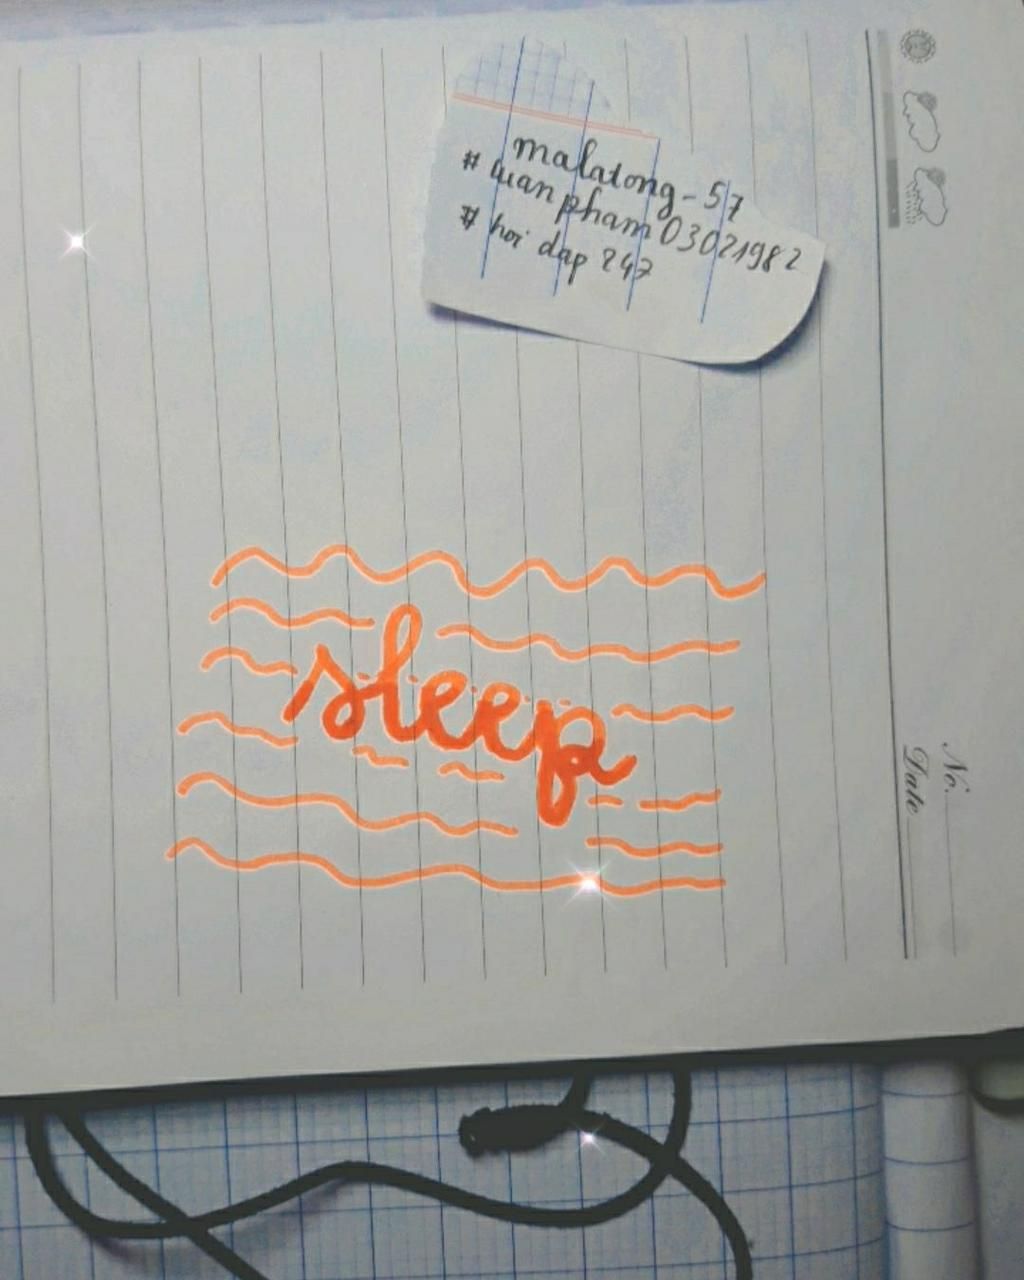 malatong-57
# tuanpham03021982
# hoi dap 247
sleep
No.
Date